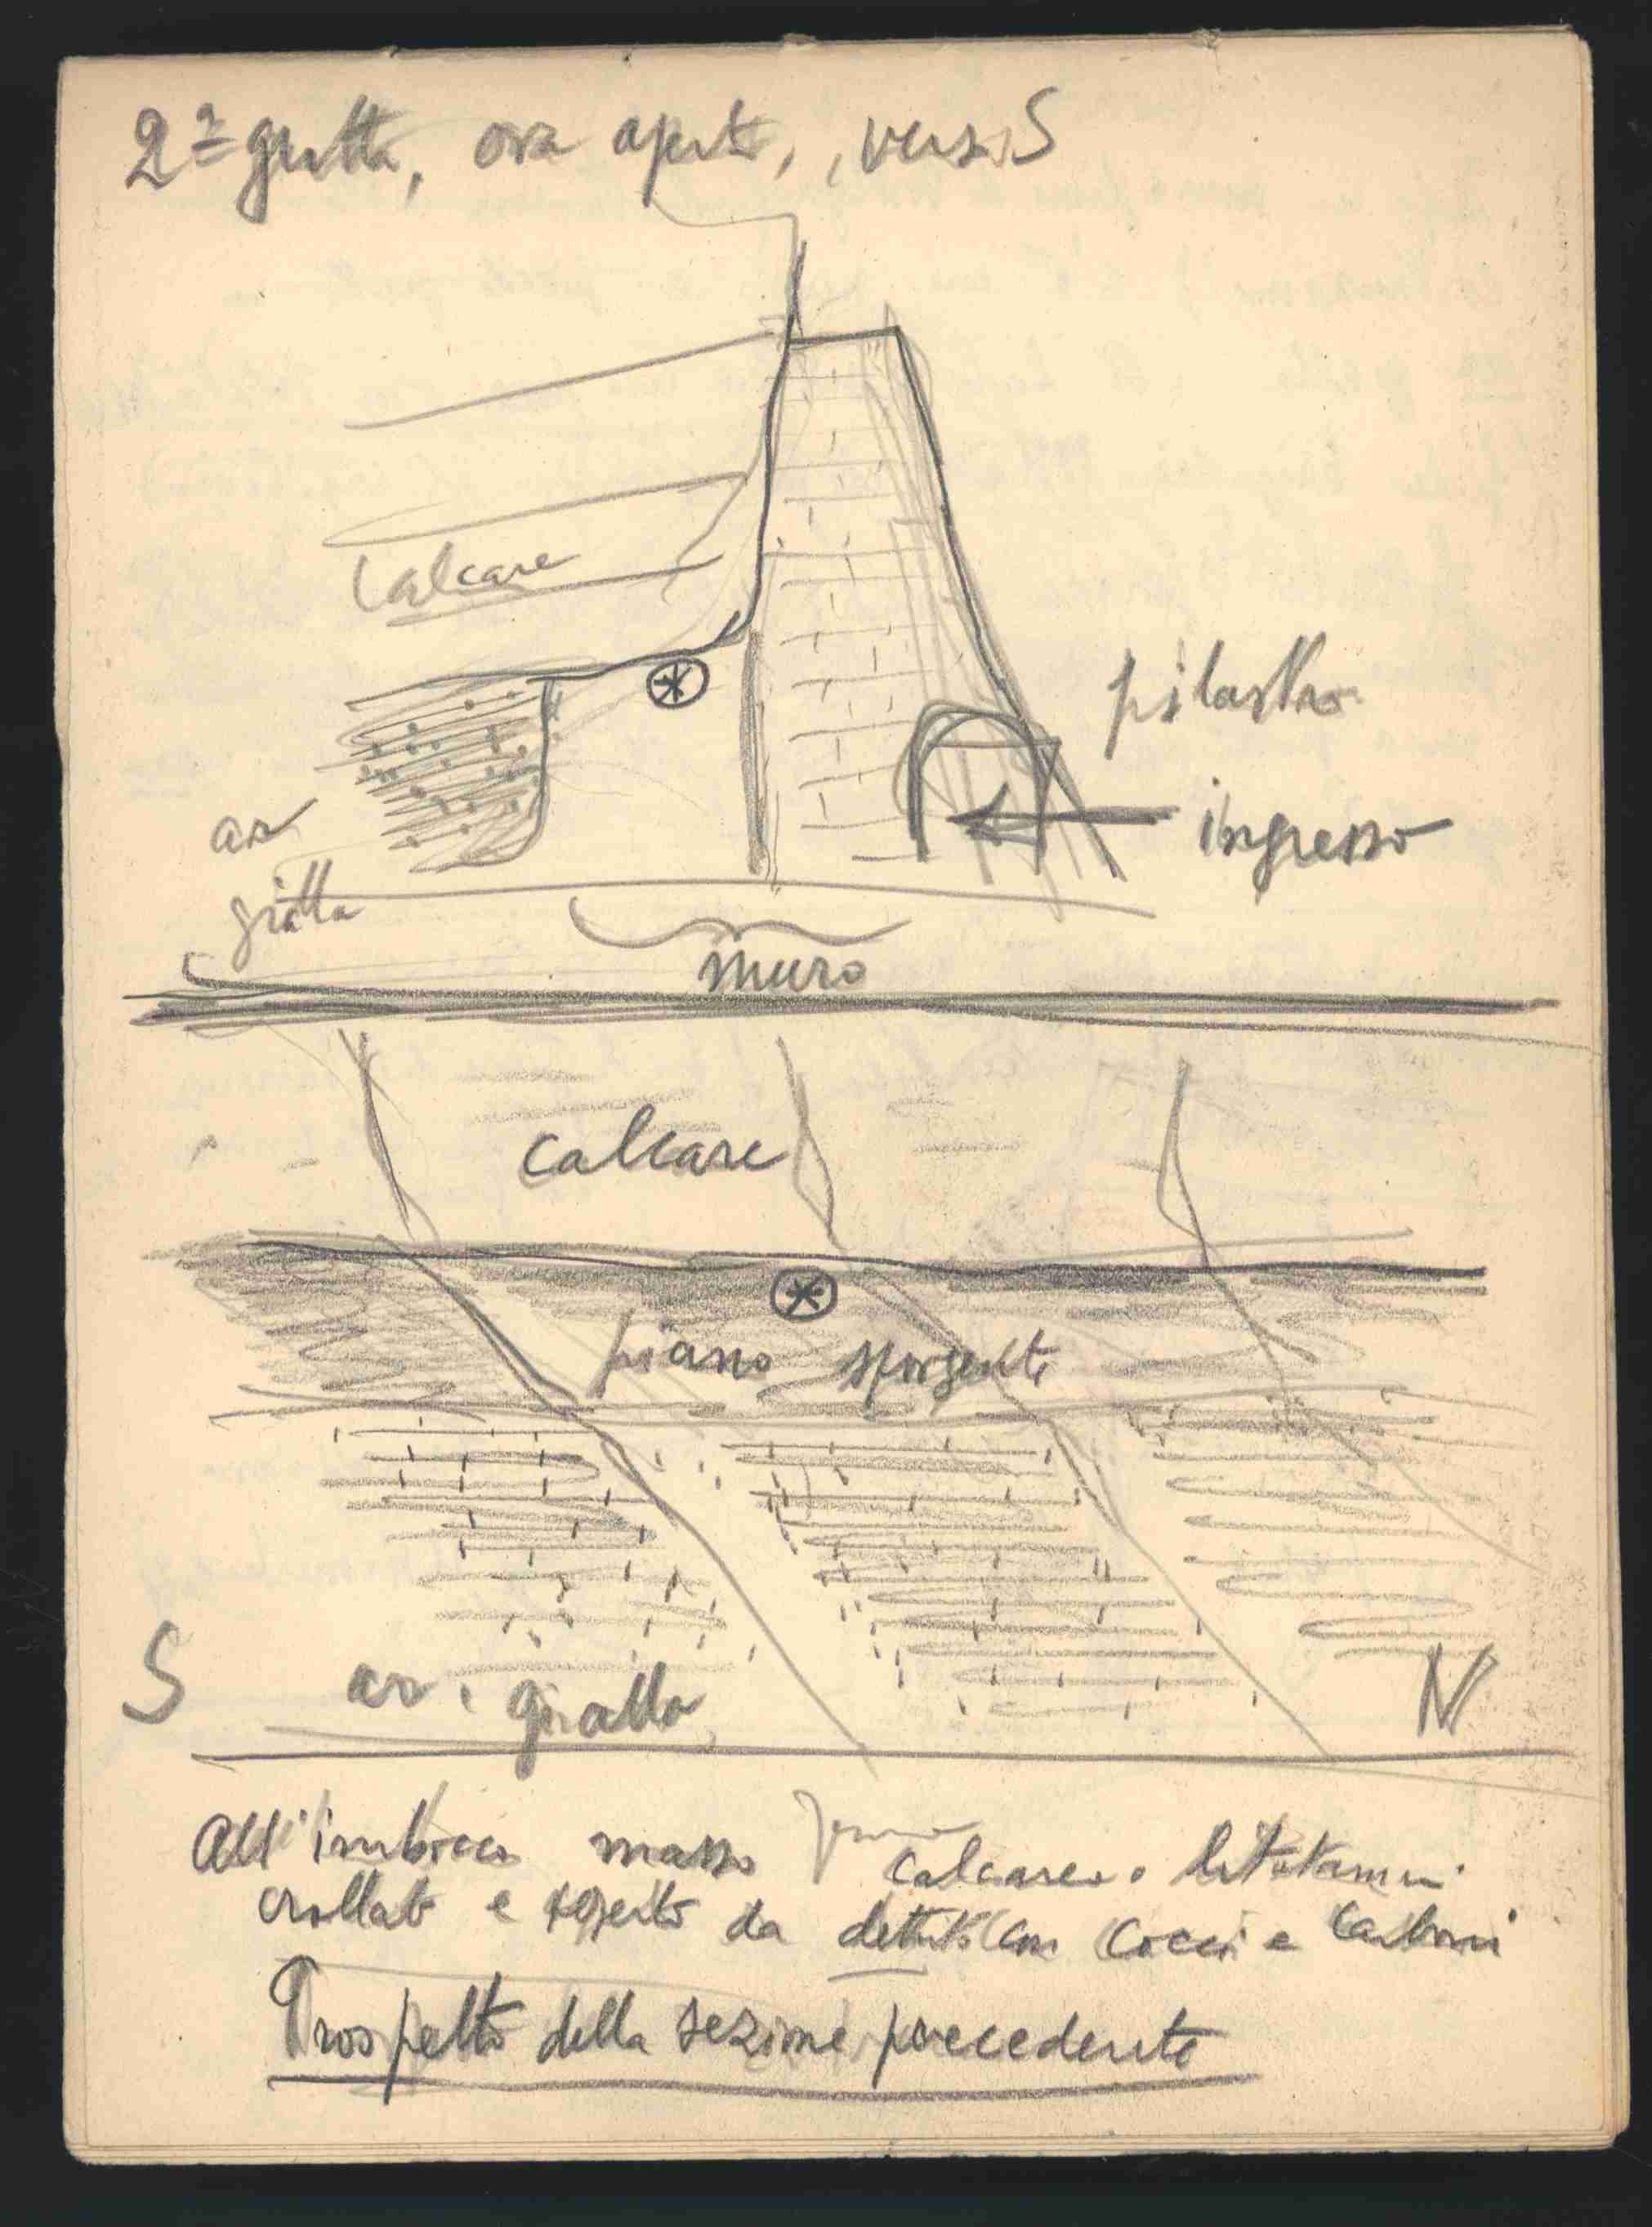 2ª grotta, ora aperta, verso S
Calcare
pilastro
ar
gialla
ingresso
muro
calcare
piano sporgente
S
ar. gialla
N
All'imbocco masso calcareo a litotamni
crollato e coperto da detriti con cocci e carboni
Prospetto della sezione precedente